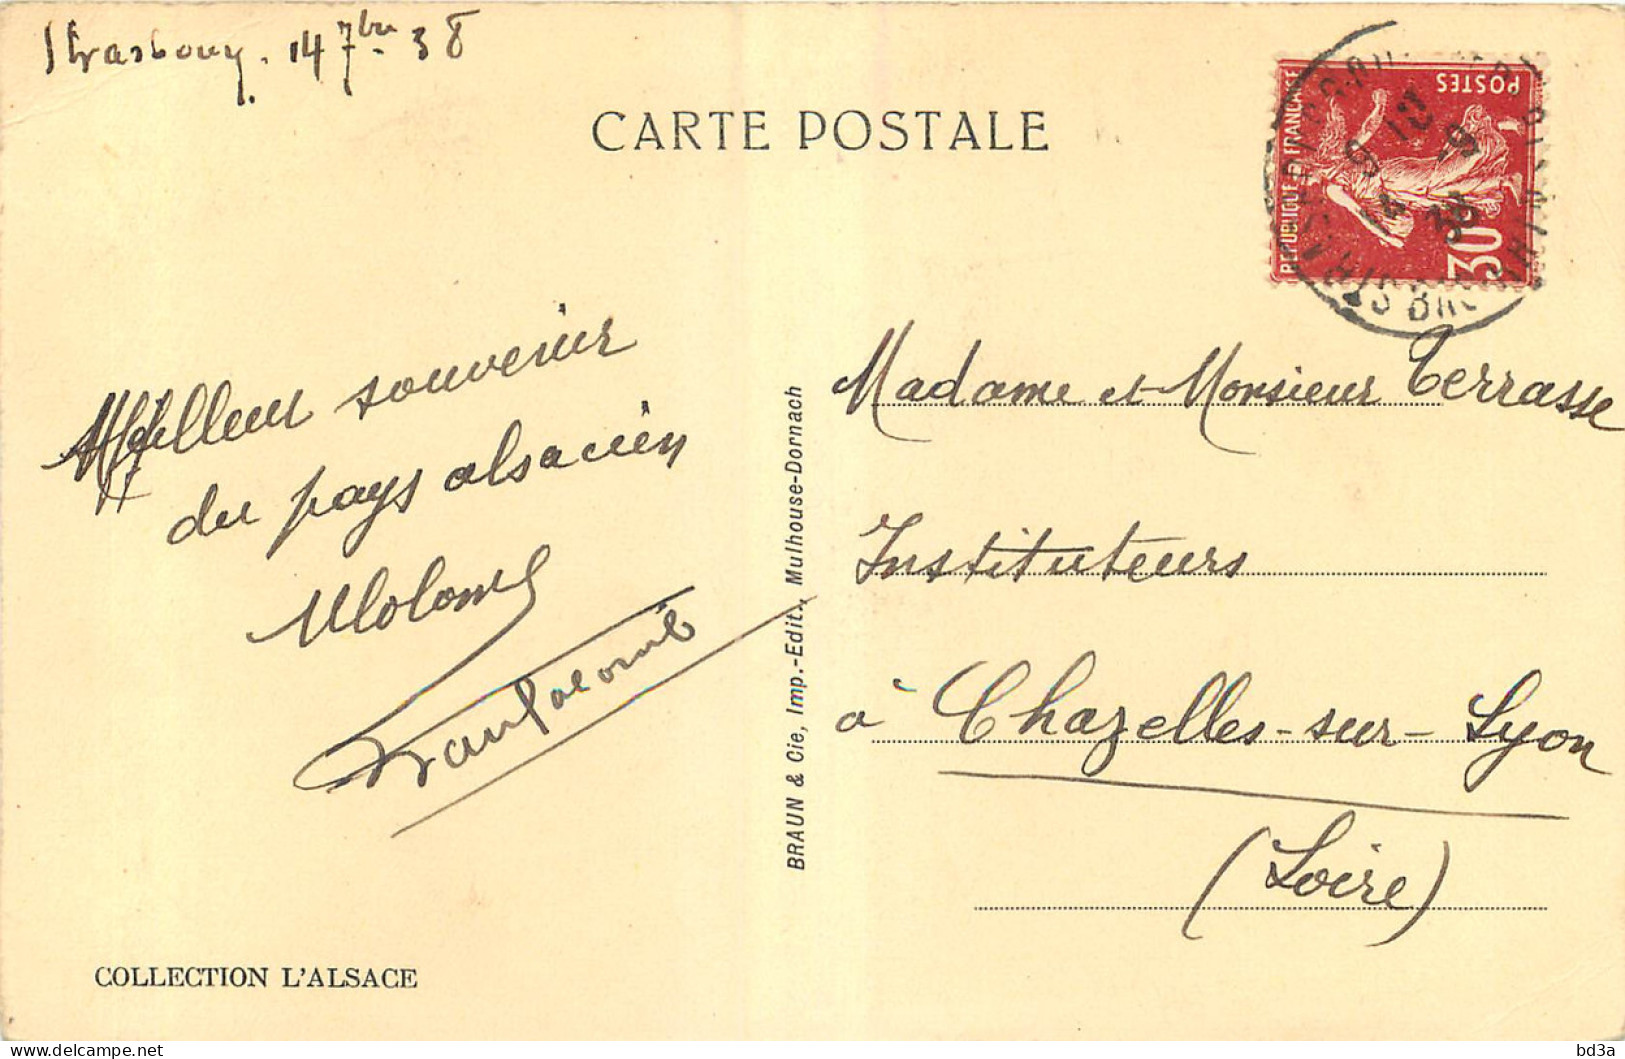 Strasbourg. 14 7bre 38
CARTE POSTALE
REPUBLIQUE FRANÇAISE
POSTES
30
14 - 9
38
Meilleur souvenir
du pays alsacien
Madame et Monsieur Terrasse
Instituteurs
à Chazelles-sur-Lyon
(Loire)
BRAUN & Cie, Imp.-Edit., Mulhouse-Dornach
COLLECTION L'ALSACE
bd3a